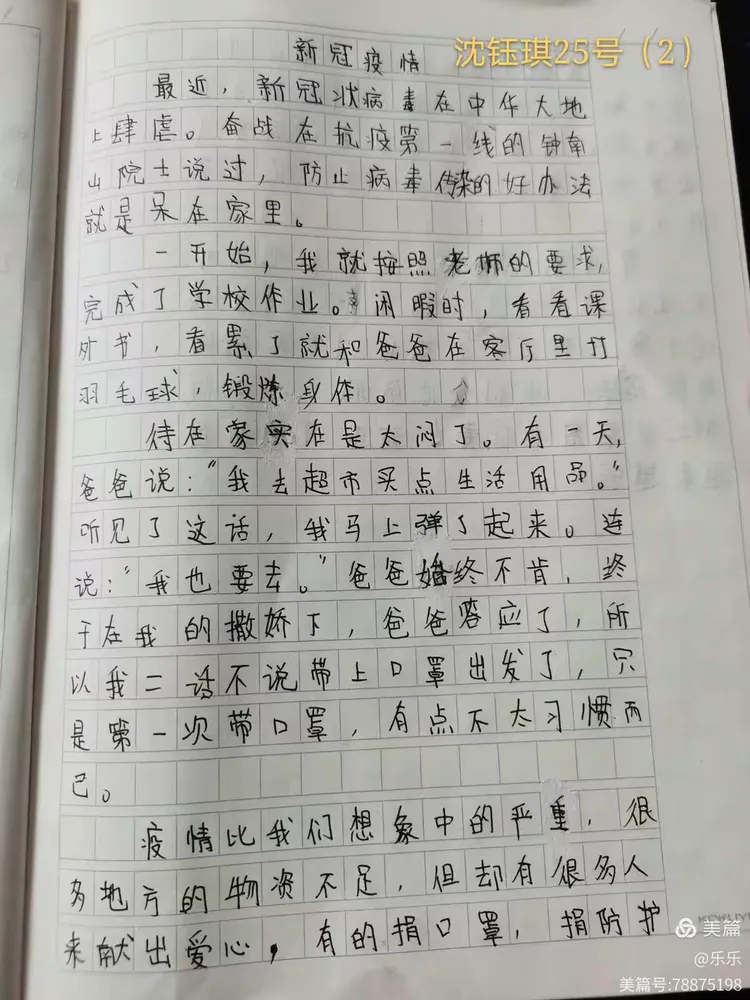 新冠疫情
沈钰琪25号（2）
最近，新冠状病毒在中华大地
上肆虐。奋战在抗疫第一线的钟南
山院士说过，防止病毒传染的好办法
就是呆在家里。
一开始，我就按照老师的要求，
完成了学校作业。闲暇时，看看课
外书，看累了就和爸爸在客厅里打
羽毛球，锻炼身体。
待在家实在是太闷了。有一天，
爸爸说："我去超市买点生活用品。"
听见了这话，我马上弹了起来。连
说："我也要去。"爸爸始终不肯，终
于在我的撒娇下，爸爸答应了，所
以我二话不说带上口罩出发了，只
是第一次带口罩，有点不太习惯而
已。
疫情比我们想象中的严重，很
多地方的物资不足，但却有很多人
来献出爱心，有的捐口罩，捐防护
美篇
@乐乐
美篇号:78875198